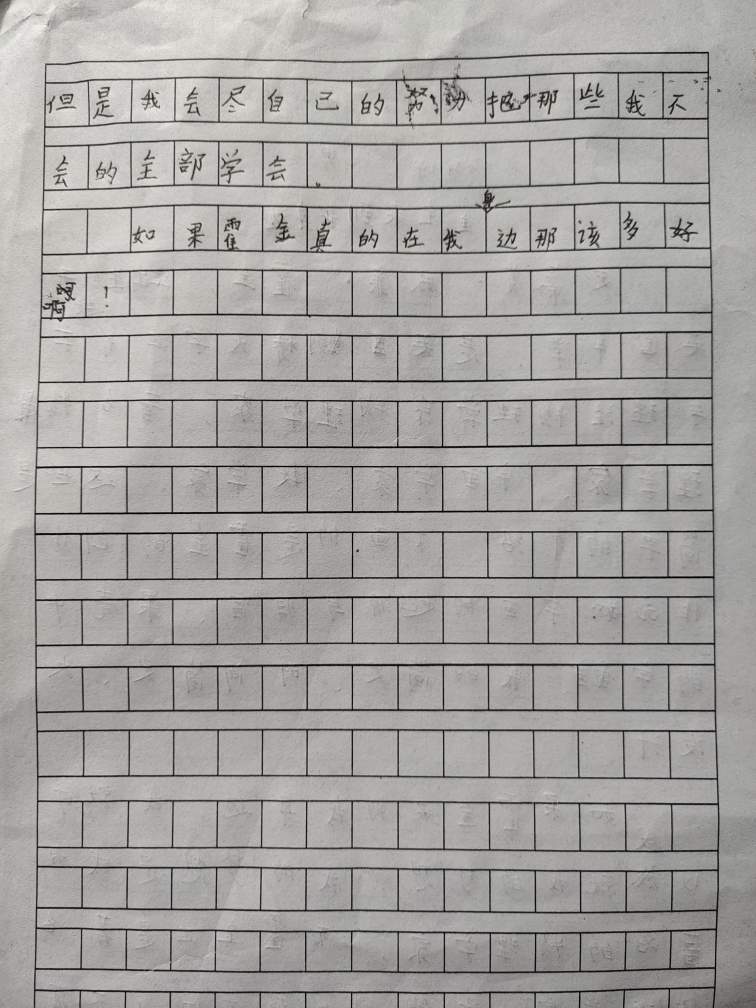 但是我会尽自己的努力把那些我不
会的全部学会.
如果霍金真的在我身边那该多好
啊!